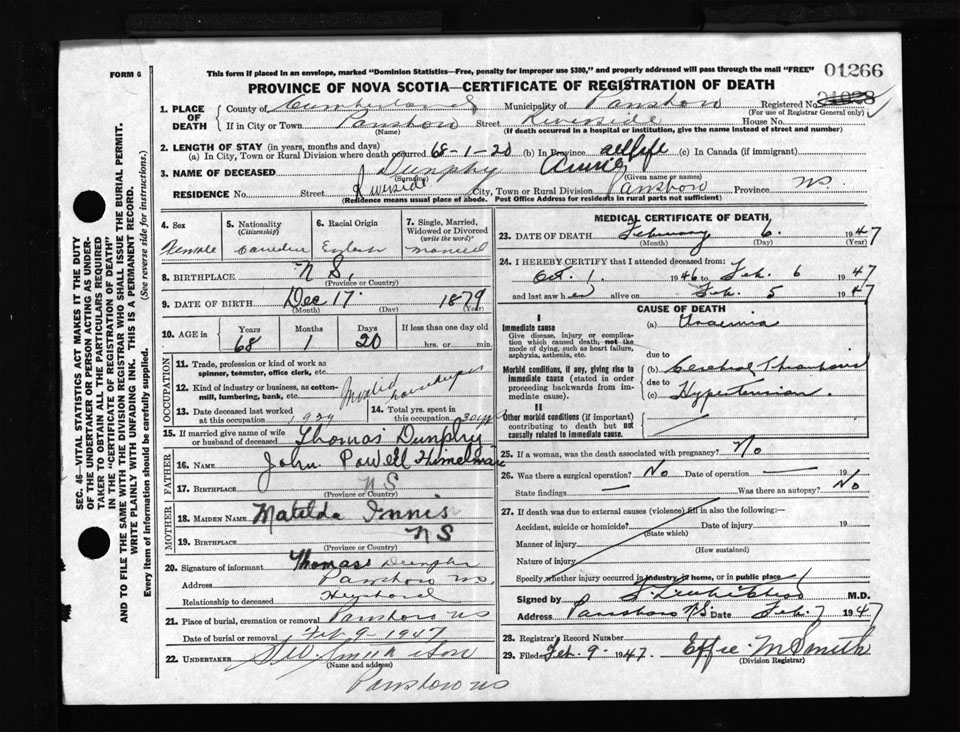 FORM 6
This form if placed in an envelope, marked "Dominion Statistics—Free, penalty for improper use $300," and properly addressed will pass through the mail "FREE"
01266
PROVINCE OF NOVA SCOTIA—CERTIFICATE OF REGISTRATION OF DEATH
1. PLACE OF DEATH
County of Cumberland Municipality of Parrsboro Registered No.
(For use of Registrar General only)
If in City or Town Parrsboro Street Riverside House No.
(Name) (If death occurred in a hospital or institution, give the name instead of street and number)
2. LENGTH OF STAY (in years, months and days)
(a) In City, Town or Rural Division where death occurred 68-1-20 (b) In Province all life (c) In Canada (if immigrant)
3. NAME OF DECEASED Dunphy Annie
(Surname) (Given name or names)
RESIDENCE No. Street Riverside City, Town or Rural Division Parrsboro Province NS.
(Residence means usual place of abode. Post Office Address for residents in rural parts not sufficient)
4. Sex Female
5. Nationality (Citizenship) Canadian
6. Racial Origin English
7. Single, Married, Widowed or Divorced (write the word) married
8. BIRTHPLACE N S,
(Province or Country)
9. DATE OF BIRTH Dec 17. 1879
(Month) (Day) (Year)
10. AGE in Years Months Days If less than one day old
68 1 20 hrs. or min.
OCCUPATION
11. Trade, profession or kind of work as spinner, teamster, office clerk, etc.
12. Kind of industry or business, as cotton-mill, lumbering, bank, etc. housekeeper
13. Date deceased last worked at this occupation
14. Total yrs. spent in this occupation
15. If married give name of wife or husband of deceased Thomas Dunphy
FATHER
16. NAME John Powell
17. BIRTHPLACE N S
(Province or Country)
MOTHER
18. MAIDEN NAME Matilda Innis
19. BIRTHPLACE N S
(Province or Country)
20. Signature of informant Thomas Dunphy
Address Parrsboro NS.
Relationship to deceased Husband
21. Place of burial, cremation or removal Parrsboro NS
Date of burial or removal Feb 9-1947
22. UNDERTAKER
(Name and address)
Parrsboro NS
MEDICAL CERTIFICATE OF DEATH
23. DATE OF DEATH February 6. 1947
(Month) (Day) (Year)
24. I HEREBY CERTIFY that I attended deceased from:
Oct. 1. 1946 to Feb. 6 1947
and last saw her alive on Feb. 5 1947
CAUSE OF DEATH
I
Immediate cause
Give disease, injury or complication which caused death, not the mode of dying, such as heart failure, asphyxia, asthenia, etc.
(a) Uraemia
due to
Morbid conditions, if any, giving rise to immediate cause (stated in order proceeding backwards from immediate cause).
(b) Cerebral Thrombosis
due to
(c) Hypertension.
II
Other morbid conditions (if important) contributing to death but not causally related to immediate cause.
25. If a woman, was the death associated with pregnancy? No
26. Was there a surgical operation? No Date of operation — 19
State findings — Was there an autopsy? No
27. If death was due to external causes (violence) fill in also the following:—
Accident, suicide or homicide? Date of injury 19
(State which)
Manner of injury
(How sustained)
Nature of injury
Specify whether injury occurred in industry, in home, or in public place
Signed by M.D.
Address Parrsboro N.S. Date Feb. 7 1947
28. Registrar's Record Number
29. Filed Feb. 9. 1947. Effie M Smith
(Division Registrar)
SEC. 46—VITAL STATISTICS ACT MAKES IT THE DUTY OF THE UNDERTAKER OR PERSON ACTING AS UNDERTAKER TO OBTAIN ALL THE PARTICULARS REQUIRED IN THE "CERTIFICATE OF REGISTRATION OF DEATH" AND TO FILE THE SAME WITH THE DIVISION REGISTRAR WHO SHALL ISSUE THE BURIAL PERMIT.
WRITE PLAINLY WITH UNFADING INK. THIS IS A PERMANENT RECORD.
Every item of information should be carefully supplied. (See reverse side for instructions.)